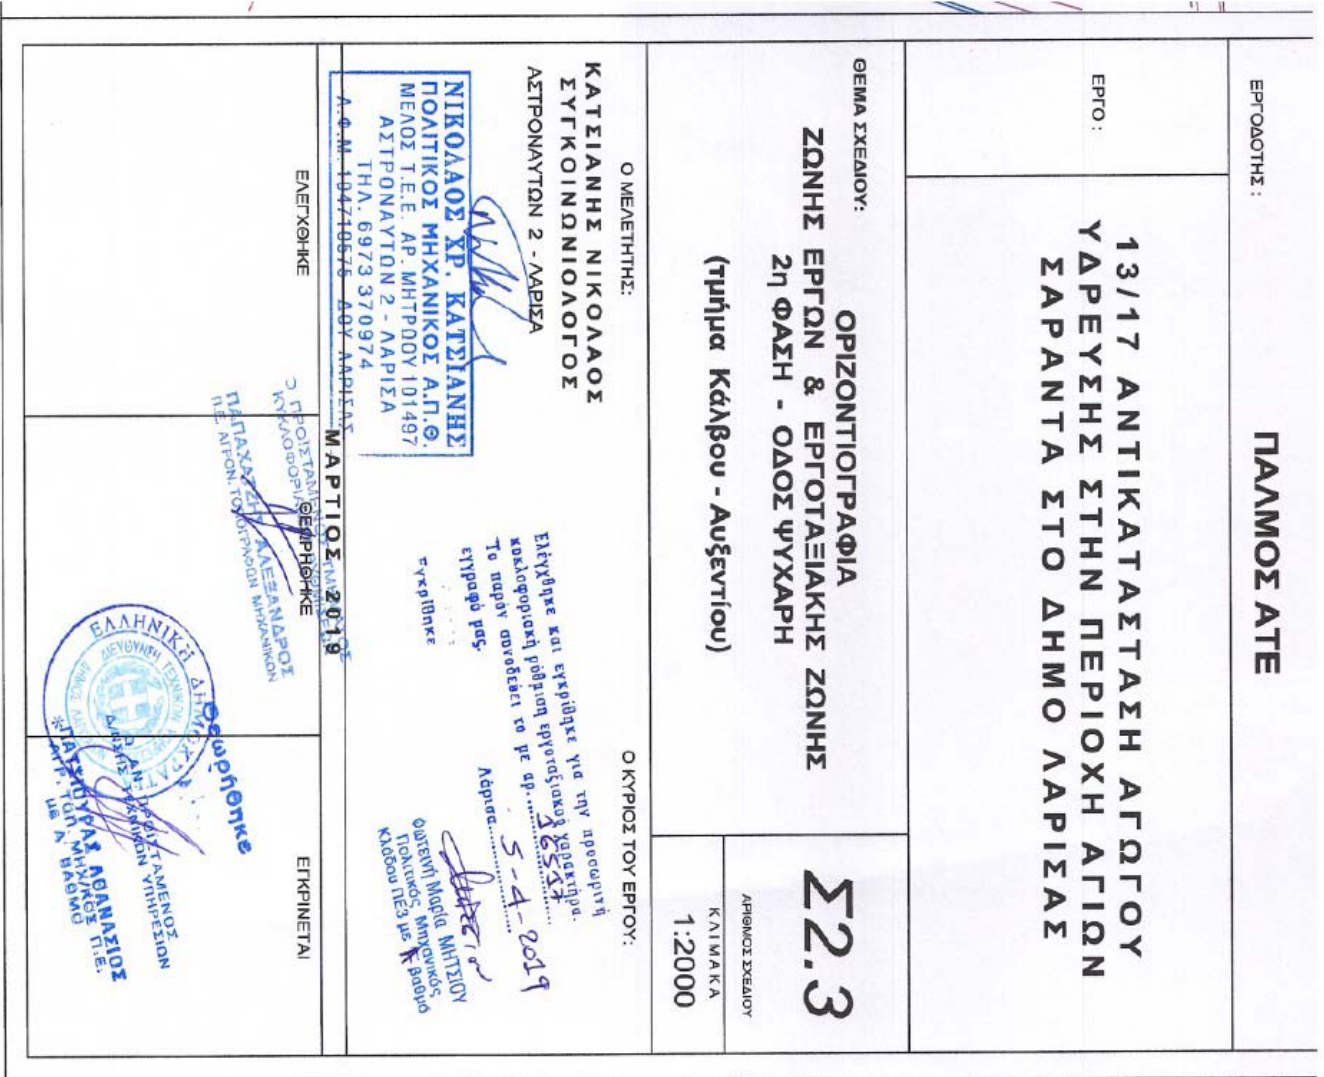 ΕΡΓΟΔΟΤΗΣ :
ΠΑΛΜΟΣ ΑΤΕ
ΕΡΓΟ :
13/17 ΑΝΤΙΚΑΤΑΣΤΑΣΗ ΑΓΩΓΟΥ
ΥΔΡΕΥΣΗΣ ΣΤΗΝ ΠΕΡΙΟΧΗ ΑΓΙΩΝ
ΣΑΡΑΝΤΑ ΣΤΟ ΔΗΜΟ ΛΑΡΙΣΑΣ
ΘΕΜΑ ΣΧΕΔΙΟΥ:
ΟΡΙΖΟΝΤΙΟΓΡΑΦΙΑ
ΖΩΝΗΣ ΕΡΓΩΝ & ΕΡΓΟΤΑΞΙΑΚΗΣ ΖΩΝΗΣ
2η ΦΑΣΗ - ΟΔΟΣ ΨΥΧΑΡΗ
(τμήμα Κάλβου - Αυξεντίου)
Σ2.3
ΑΡΙΘΜΟΣ ΣΧΕΔΙΟΥ
ΚΛΙΜΑΚΑ
1:2000
Ο ΜΕΛΕΤΗΤΗΣ:
ΚΑΤΣΙΑΝΗΣ ΝΙΚΟΛΑΟΣ
ΣΥΓΚΟΙΝΩΝΙΟΛΟΓΟΣ
ΑΣΤΡΟΝΑΥΤΩΝ 2 - ΛΑΡΙΣΑ
ΝΙΚΟΛΑΟΣ ΧΡ. ΚΑΤΣΙΑΝΗΣ
ΠΟΛΙΤΙΚΟΣ ΜΗΧΑΝΙΚΟΣ Α.Π.Θ.
ΜΕΛΟΣ Τ.Ε.Ε. ΑΡ. ΜΗΤΡΩΟΥ 101497
ΑΣΤΡΟΝΑΥΤΩΝ 2 - ΛΑΡΙΣΑ
ΤΗΛ. 6973 370974
Α.Φ.Μ. 104710575 ΔΟΥ ΛΑΡΙΣΑΣ
Ο ΚΥΡΙΟΣ ΤΟΥ ΕΡΓΟΥ:
Ελέγχθηκε και εγκρίθηκε για την προσωρινή
κυκλοφοριακή ρύθμιση εργοταξιακού χαρακτήρα.
Το παρόν συνοδεύει το με αρ. 16517
έγγραφό μας.
Λάρισα 5-4-2019
Εγκρίθηκε
Φωτεινή Μαρία ΜΗΤΣΙΟΥ
Πολιτικός Μηχανικός,
κλάδου ΠΕ3 με Α βαθμό
ΜΑΡΤΙΟΣ 2019
ΕΛΕΓΧΘΗΚΕ
ΘΕΩΡΗΘΗΚΕ
ΕΓΚΡΙΝΕΤΑΙ
Ο ΠΡΟΪΣΤΑΜΕΝΟΣ ΤΜΗΜΑΤΟΣ
ΠΑΠΑΧΑΤΖΗΣ ΑΛΕΞΑΝΔΡΟΣ
Π.Ε. ΑΓΡΟΝ. ΤΟΠΟΓΡΑΦΩΝ ΜΗΧΑΝΙΚΩΝ
Θεωρήθηκε
ΕΛΛΗΝΙΚΗ ΔΗΜΟΚΡΑΤΙΑ
Ο ΑΝ. ΠΡΟΪΣΤΑΜΕΝΟΣ
Δ/ΝΣΗΣ ΤΕΧΝΙΚΩΝ ΥΠΗΡΕΣΙΩΝ
ΠΑΤΣΙΟΥΡΑΣ ΑΘΑΝΑΣΙΟΣ
ΑΓΡ. ΤΟΠ. ΜΗΧ/ΚΟΣ Π.Ε.
ΜΕ Α' ΒΑΘΜΟ